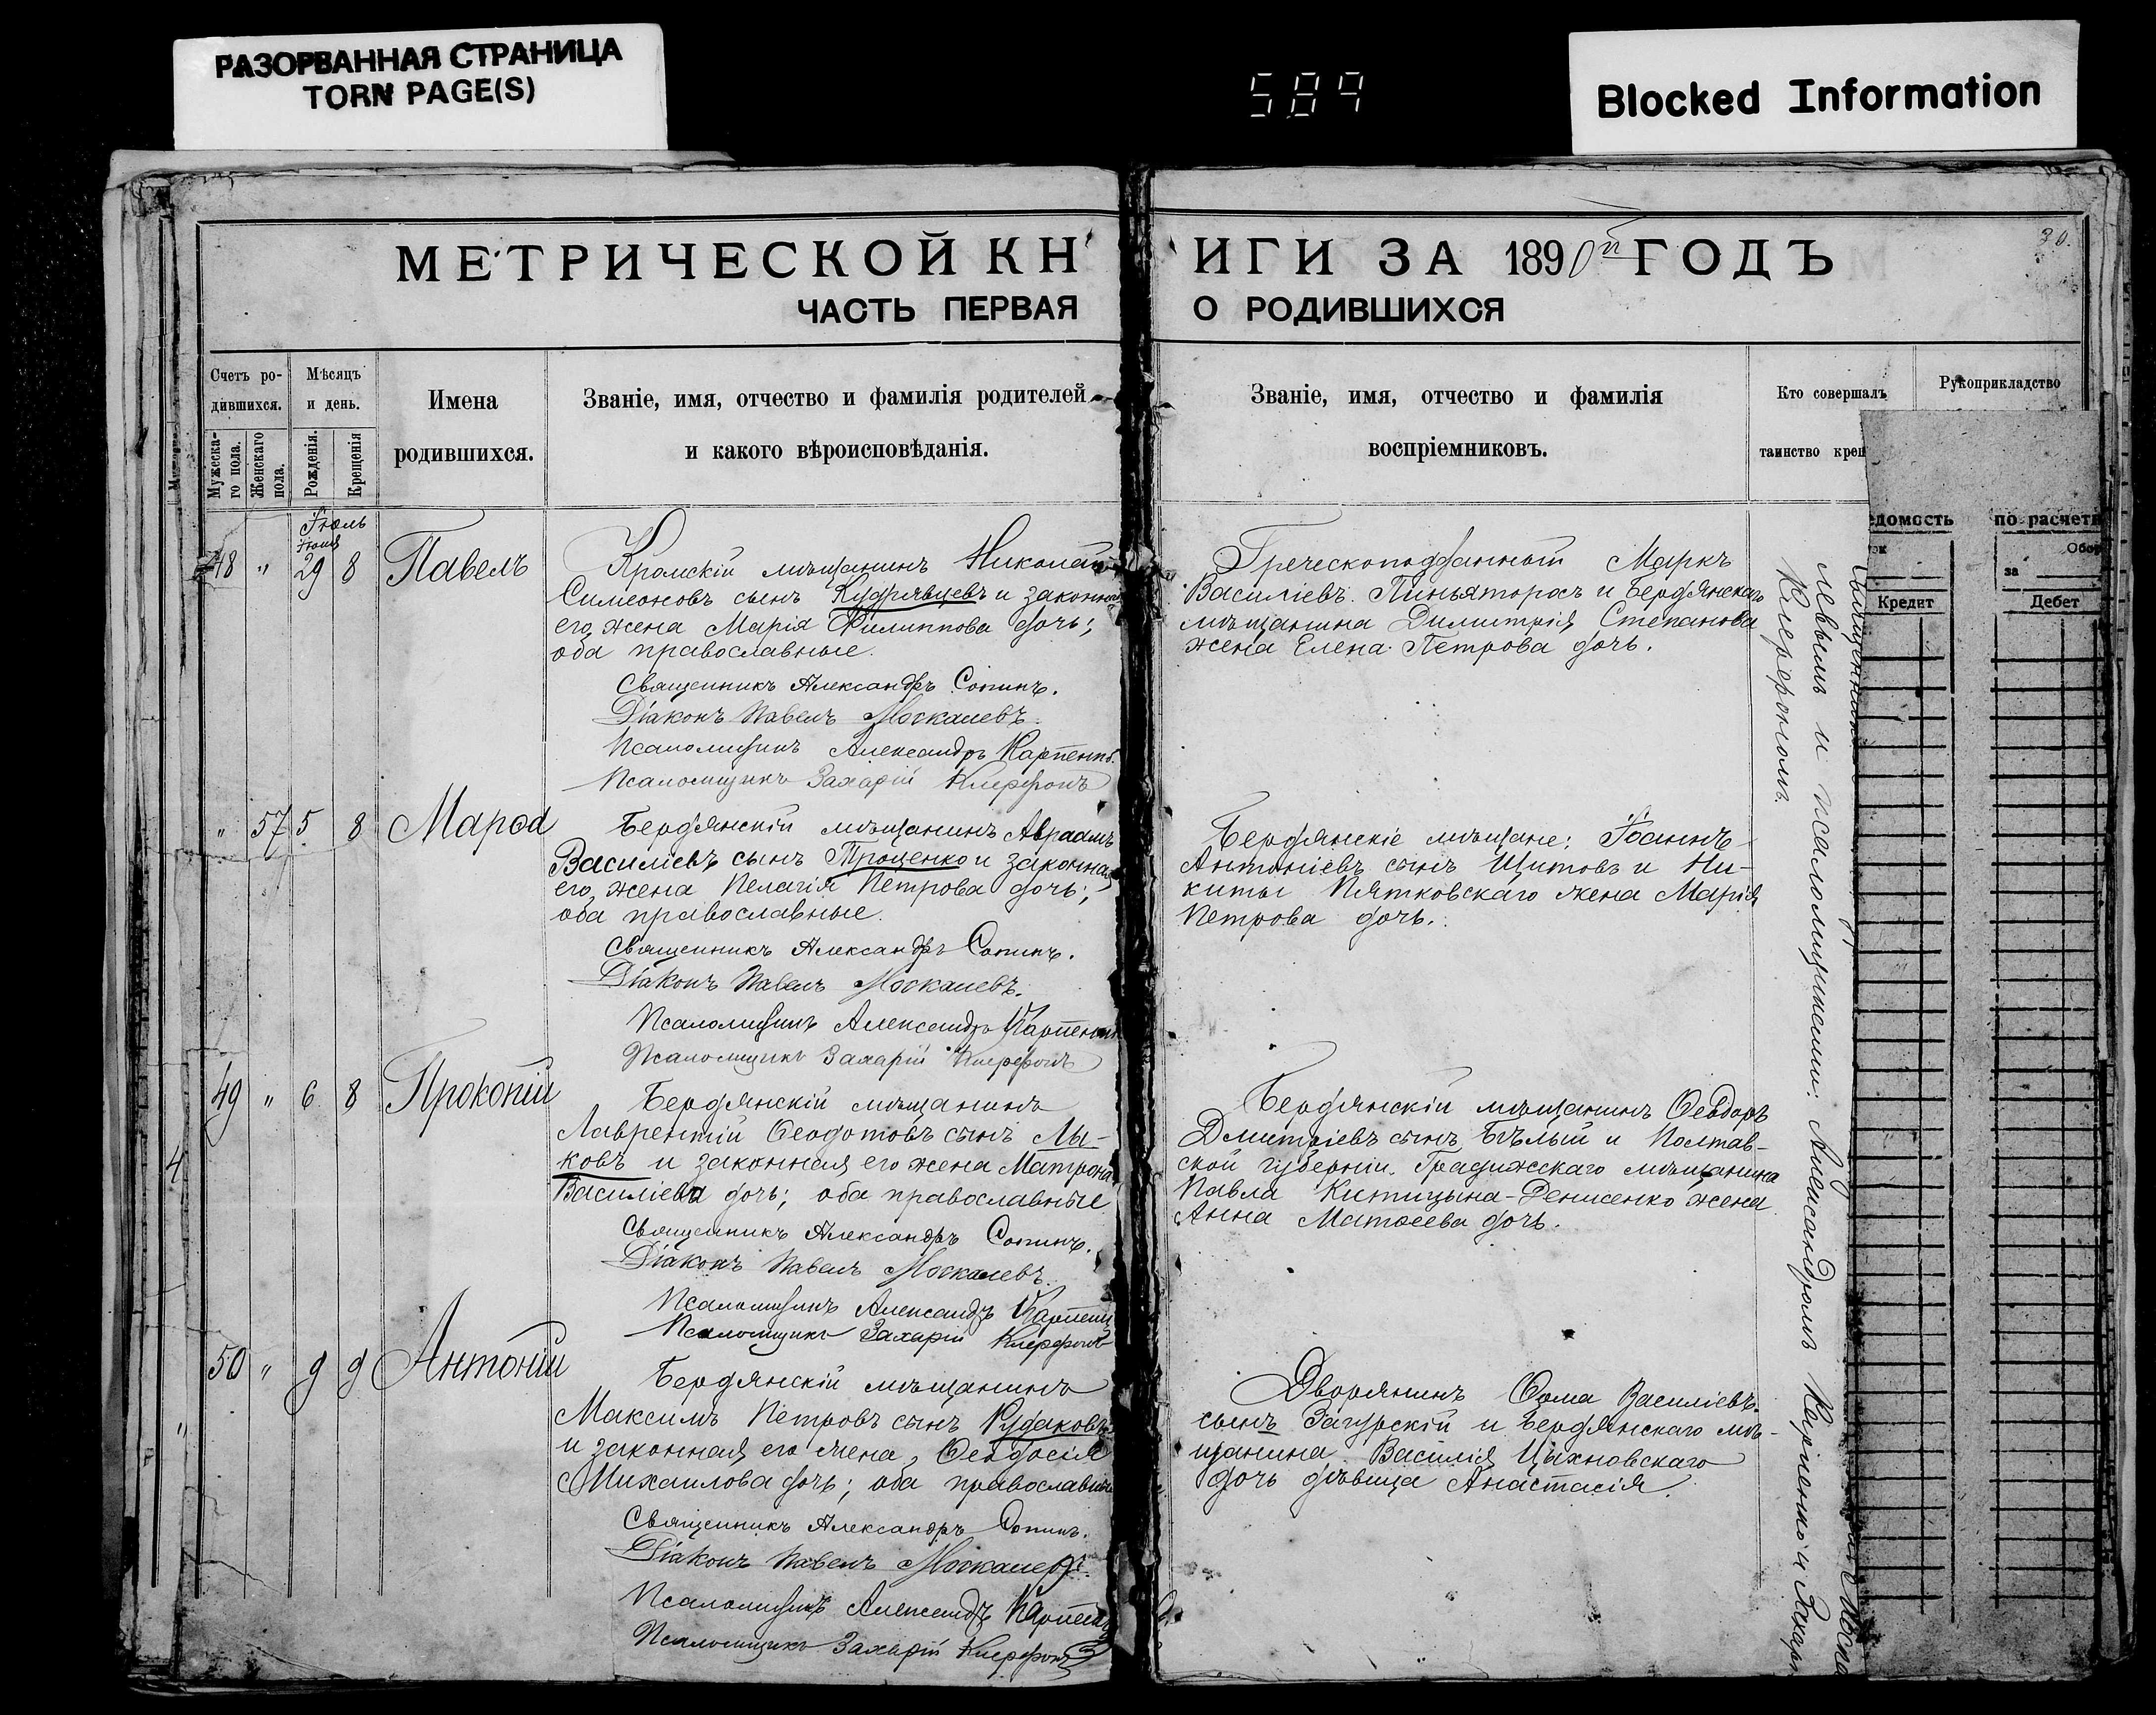 РАЗОРВАННАЯ СТРАНИЦА
TORN PAGE(S)
589
Blocked Information
МЕТРИЧЕСКОЙ КН
ЧАСТЬ ПЕРВАЯ
Счетъ ро-
дившихся.
Мужеска-
го пола.
Женскаго
пола.
Мѣсяцъ
и день.
Рожденія.
Крещенія
Имена
родившихся.
Званіе, имя, отчество и фамилія родителей
и какого вѣроисповѣданія.
Іюль
Іюня
48 " 29 8 Павелъ
Кромскій мѣщанинъ Николай
Симеоновъ сынъ Кудрявцевъ и законная
его жена Марія Филиппова дочь;
оба православные.
Священникъ Александръ Сопинъ.
Діаконъ Павелъ Москалевъ.
Псаломщикъ Александръ Карпенко
Псаломщикъ Захарій Клерфонъ
" 57 5 8 Мароа
Бердянскій мѣщанинъ Авраамъ
Василіевъ сынъ Троценко и законная
его жена Пелагія Петрова дочь;
оба православные.
Священникъ Александръ Сопинъ.
Діаконъ Павелъ Москалевъ.
Псаломщикъ Александръ Карпенко
Псаломщикъ Захарій Клерфонъ
49 " 6 8 Прокопій
Бердянскій мѣщанинъ
Лаврентій Ѳеодотовъ сынъ Лы-
ковъ и законная его жена Матрона
Василіева дочь; оба православные
Священникъ Александръ Сопинъ.
Діаконъ Павелъ Москалевъ.
Псаломщикъ Александръ Карпенко
Псаломщикъ Захарій Клерфонъ
50 " 9 9 Антоній
Бердянскій мѣщанинъ
Максимъ Петровъ сынъ Рудаковъ
и законная его жена, Ѳеодосія
Михаилова дочь; оба православные
Священникъ Александръ Сопинъ.
Діаконъ Павелъ Москалевъ.
Псаломщикъ Александръ Карпенко
Псаломщикъ Захарій Клерфонъ
ИГИ ЗА 1890й ГОДЪ
30.
О РОДИВШИХСЯ
Званіе, имя, отчество и фамилія
воспріемниковъ.
Кто совершалъ
таинство крещ
Рукоприкладство
Греческоподданный Маркъ
Василіевъ Пиньяторосъ и Бердянскаго
мѣщанина Димитрія Степанова
жена Елена Петрова дочь.
Бердянскіе мѣщане: Іоаннъ
Антоніевъ сынъ Щитовъ и Ни-
киты Пятковскаго жена Марія
Петрова дочь.
Бердянскій мѣщанинъ Ѳеодоръ
Дмитріевъ сынъ Бѣлый и Полтав-
ской губерніи Градижскаго мѣщанина
Павла Китицына-Денисенко жена
Анна Матѳеева дочь.
Дворянинъ Ѳома Василіевъ
сынъ Загурскій и Бердянскаго мѣ-
щанина Василія Цыхновскаго
дочь дѣвица Анастасія.
левымъ и псаломщиками: Александромъ Карпенко и Захарі
едомость
по расчет
за
Кредит
Дебет